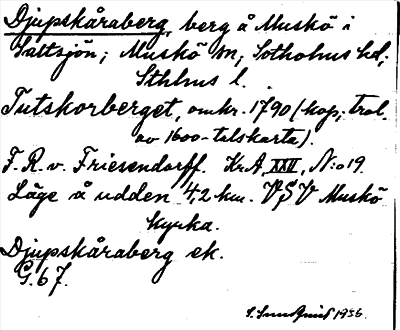 Djupskåraberg, berg å Muskö i
Saltsjön; Muskö sn, Sotholms hd,
Sthlms l.
Tutskorberget, omkr. 1790 (kop; trol.
av 1600-talskarta).
F. R. v. Friesendorff. KrA XXII, N:o 19.
Läge å udden 4,2 km. VSV Muskö
kyrka.
Djupskåraberg ek.
G. 67.
S. Sundqvist 1936.